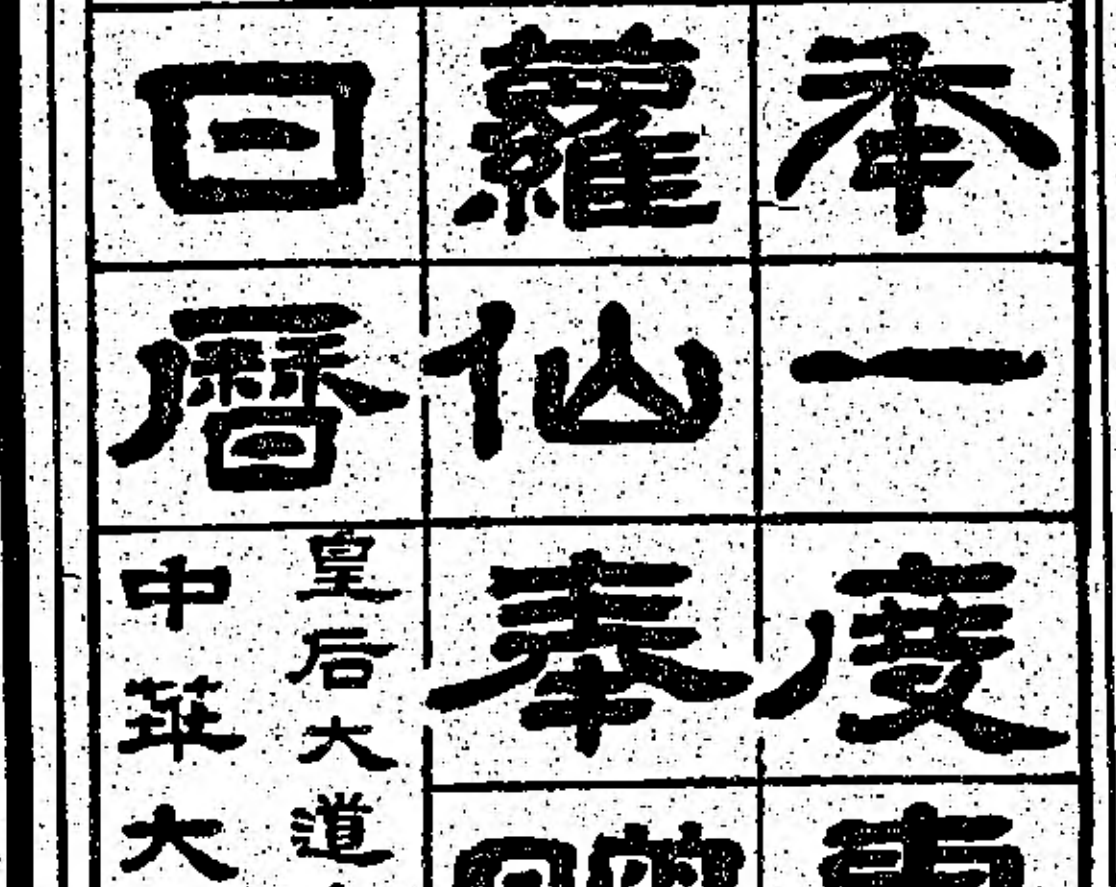 秊一度
蘿仙奉贈
日曆
皇后大道
中華大